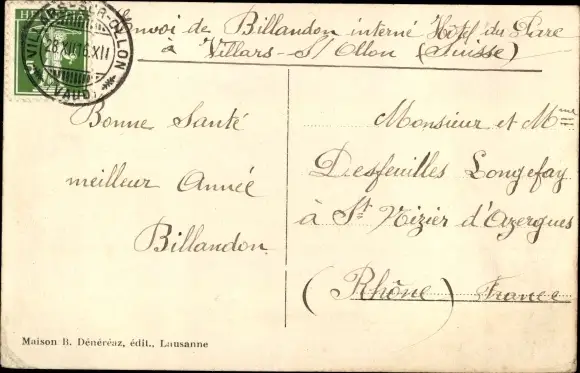 Envoi de Billandon interné Hôtel du Parc
à Villars-S/Ollon (Suisse)
VILLARS-SUR-OLLON
28.XII.16.XII
VAUD
HE
Bonne Santé
meilleur Année
Billandon
Monsieur et Mme
Desfeuilles Longefay
à St Nizier d'Azergues
(Rhône) France
Maison B. Dénéréaz, édit., Lausanne